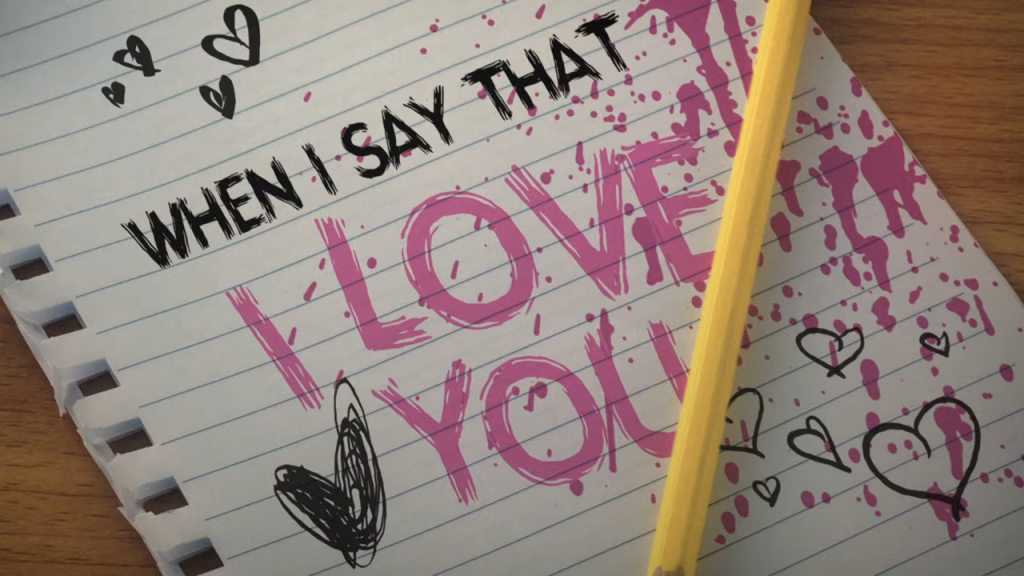 WHEN I SAY THAT
I LOVE
YOU